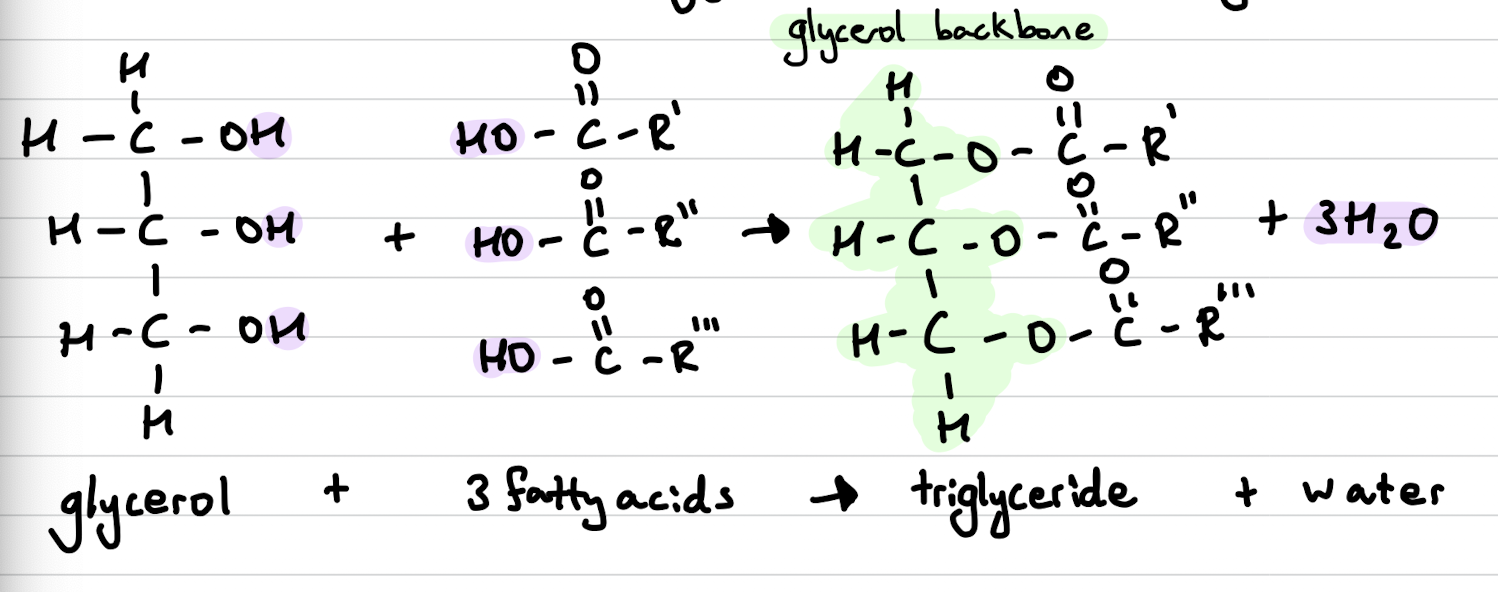 glycerol backbone
H O H O
H - C - OH HO - C - R' H - C - O - C - R'
O O
H - C - OH + HO - C - R'' → H - C - O - C - R'' + 3H₂O
O O
H - C - OH HO - C - R''' H - C - O - C - R'''
H H
glycerol + 3 fatty acids → triglyceride + water